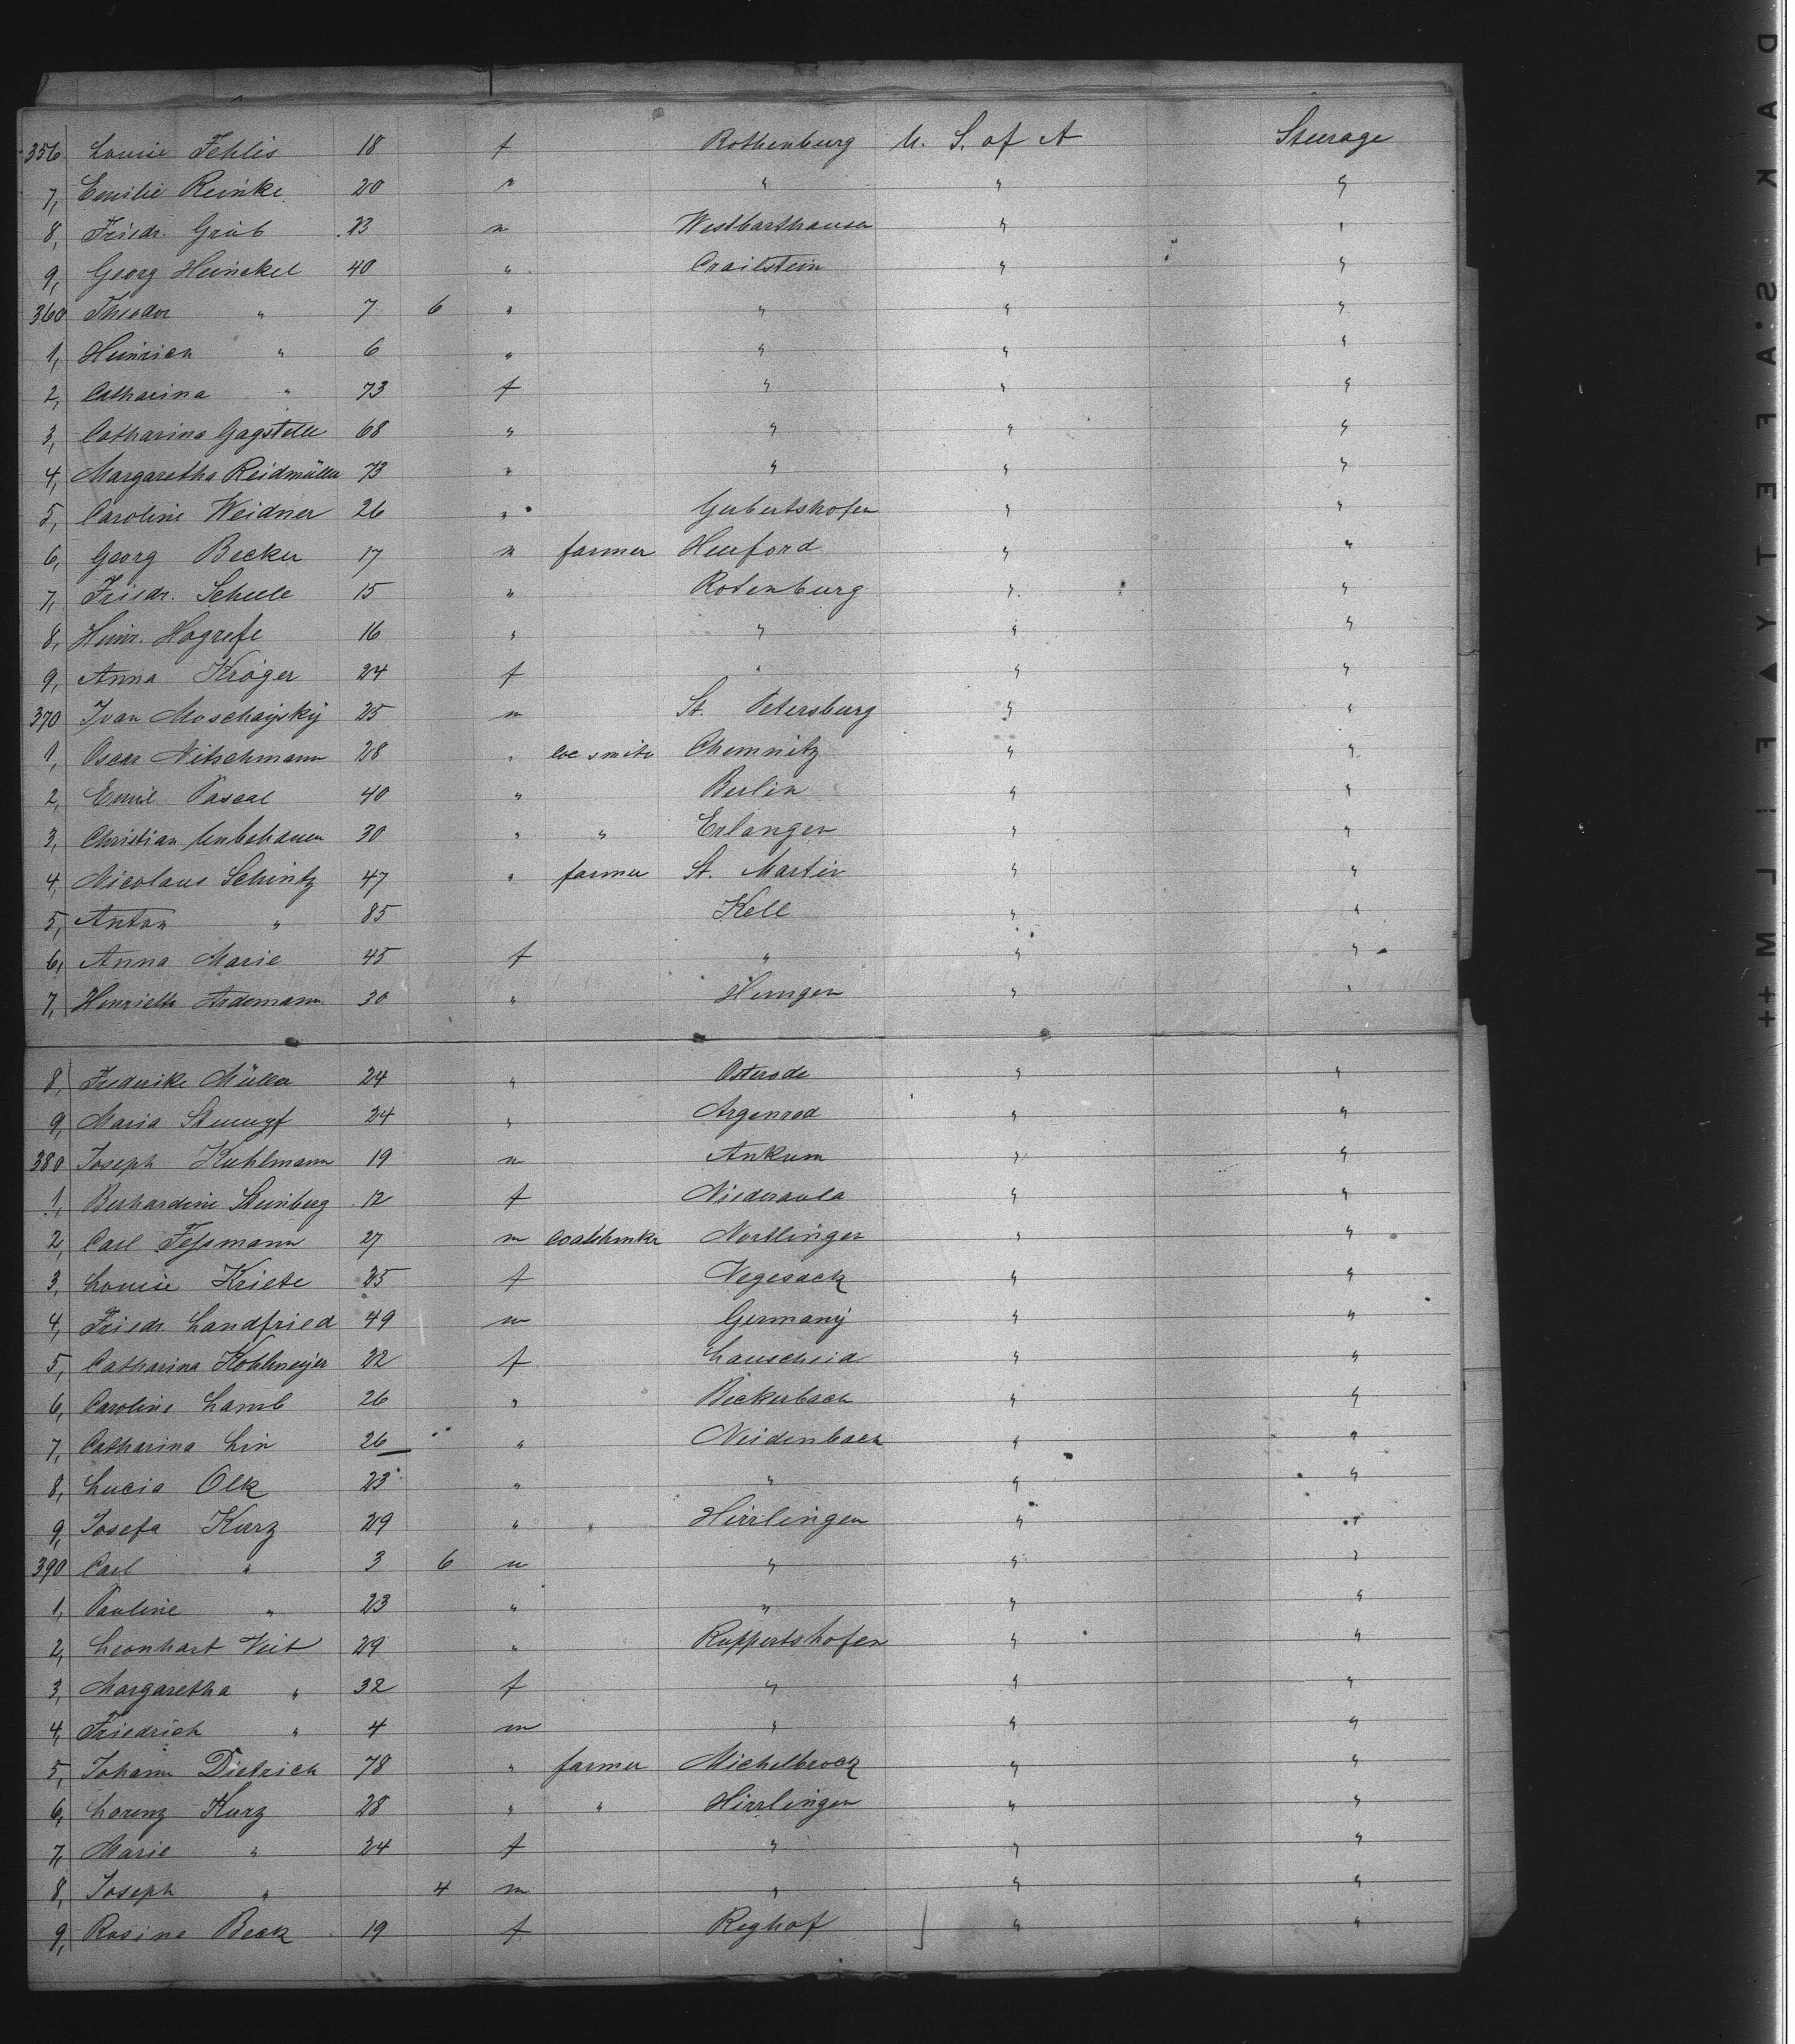 356 Louise Fehlis 18 f Rothenburg U. S. of A Steerage
7, Emilie Reinke 20 " " " "
8, Friedr. Grüb 23 m Westbarthausen " "
9, Georg Heinckel 40 " Crailstein " "
360 Theodor " 7 6 " " " "
1, Heinrich " 6 " " " "
2, Catharina " 73 f " " "
3, Catharina Gagstelle 68 " " " "
4, Margaretha Reidmüller 73 " " " "
5, Caroline Weidner 26 " Gerbertshofen " "
6, Georg Becker 17 m farmer Herford " "
7, Friedr. Scheele 15 " Rotenburg " "
8, Heinr. Hogrefe 16 " " " "
9, Anna Kröger 24 f " " "
370 Ivan Moschaysky 25 m St. Petersburg " "
1, Oscar Nitschmann 28 " Chemnitz " "
2, Emil Pascal 40 " Berlin " "
3, Christian Unbehauen 30 " " Erlangen " "
4, Nicolaus Schintz 47 " farmer St. Martin " "
5, Anton " 85 Kell " "
6, Anna Marie 45 f " " "
7, Henriette Ardemann 30 " Hungen " "
8, Frederike Müller 24 " Osterode " "
9, Maria Stumpf 24 " Argenrod " "
380 Joseph Kuhlmann 19 m Ankum " "
1, Berhardine Steinberg 12 f Niederaula " "
2, Carl Feßmann 27 m Nortlingen " "
3, Louise Kriete 25 f Vegesack " "
4, Friedr. Landfried 49 m Germany " "
5, Catharina Kohlmeyer 22 f Lauscheid " "
6, Caroline Lamb 26 " Beckerbach " "
7, Catharina Lin 26 " Neidenbach " "
8, Lucia Olk 23 " " " "
9, Josefa Kurz 29 " Hirrlingen " "
390 Carl " 3 6 m " " "
1, Pauline " 23 " " " "
2, Leonhart Veit 29 " Ruppertshofen " "
3, Margaretha " 32 f " " "
4, Friedrich " 4 m " " "
5, Johann Dietrich 78 " farmer Michelbrock " "
6, Lorenz Kurz 28 " " Hirrlingen " "
7, Marie " 24 f " " "
8, Joseph " 4 m " " "
9, Rosine Beck 19 f Reghof " "